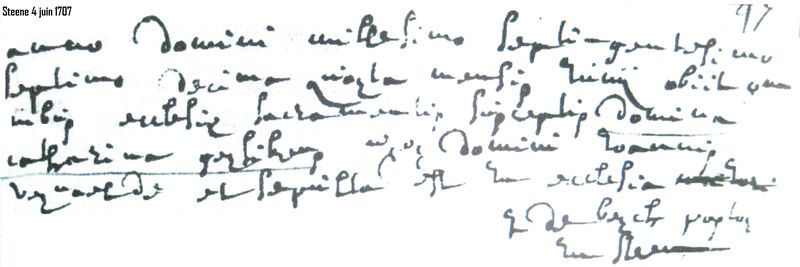 Steene 4 juin 1707
97
anno domini millesimo septingentesimo
septimo decima quarta mensis Junij obiit om
nibus ecclesiæ sacramentis susceptis domina
catharina uxor domini Joannis
et sepulta est in ecclesia
de pastor
in Steene